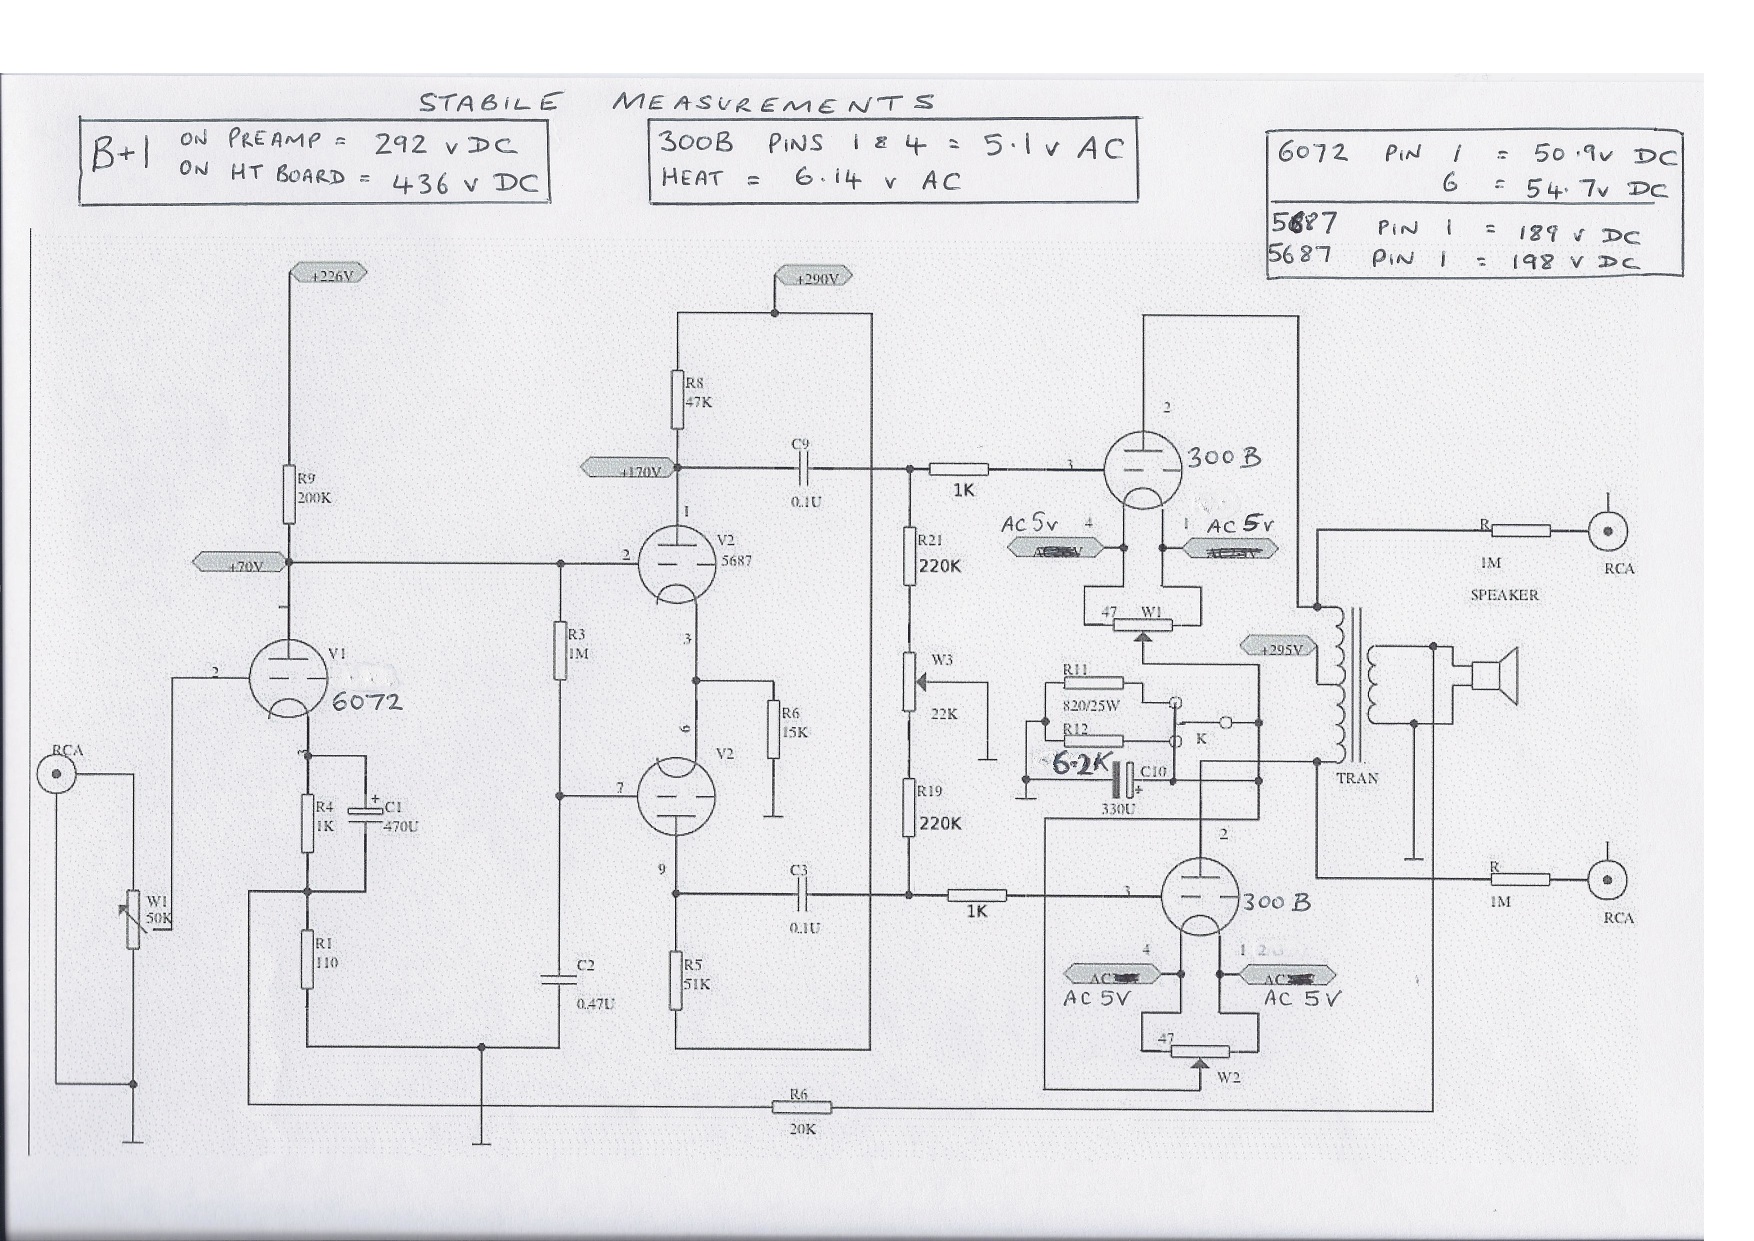 STABILE MEASUREMENTS
B+1 ON PREAMP = 292 v DC
ON HT BOARD = 436 v DC
300B PINS 1 & 4 = 5.1 v AC
HEAT = 6.14 v AC
6072 PIN 1 = 50.9v DC
6 = 54.7v DC
5687 PIN 1 = 189 v DC
5687 PIN 1 = 198 v DC
+226V
+290V
R8
47K
2
300B
+170V
C9
0.1U
1K
3
R9
200K
1
AC 5v
4
1
AC 5v
R21
220K
R
1M
SPEAKER
RCA
+70V
2
V2
5687
1
47
W1
R3
1M
3
+295V
V1
6072
2
W3
22K
R11
820/25W
R12
6.2K
K
C10
+
330U
TRAN
6
R6
15K
V2
RCA
3
R4
1K
+
C1
470U
7
R19
220K
2
9
C3
0.1U
1K
3
300B
R
1M
RCA
W1
50K
R1
110
C2
0.47U
R5
51K
4
1
AC
AC
AC 5V
AC 5V
47
W2
R6
20K